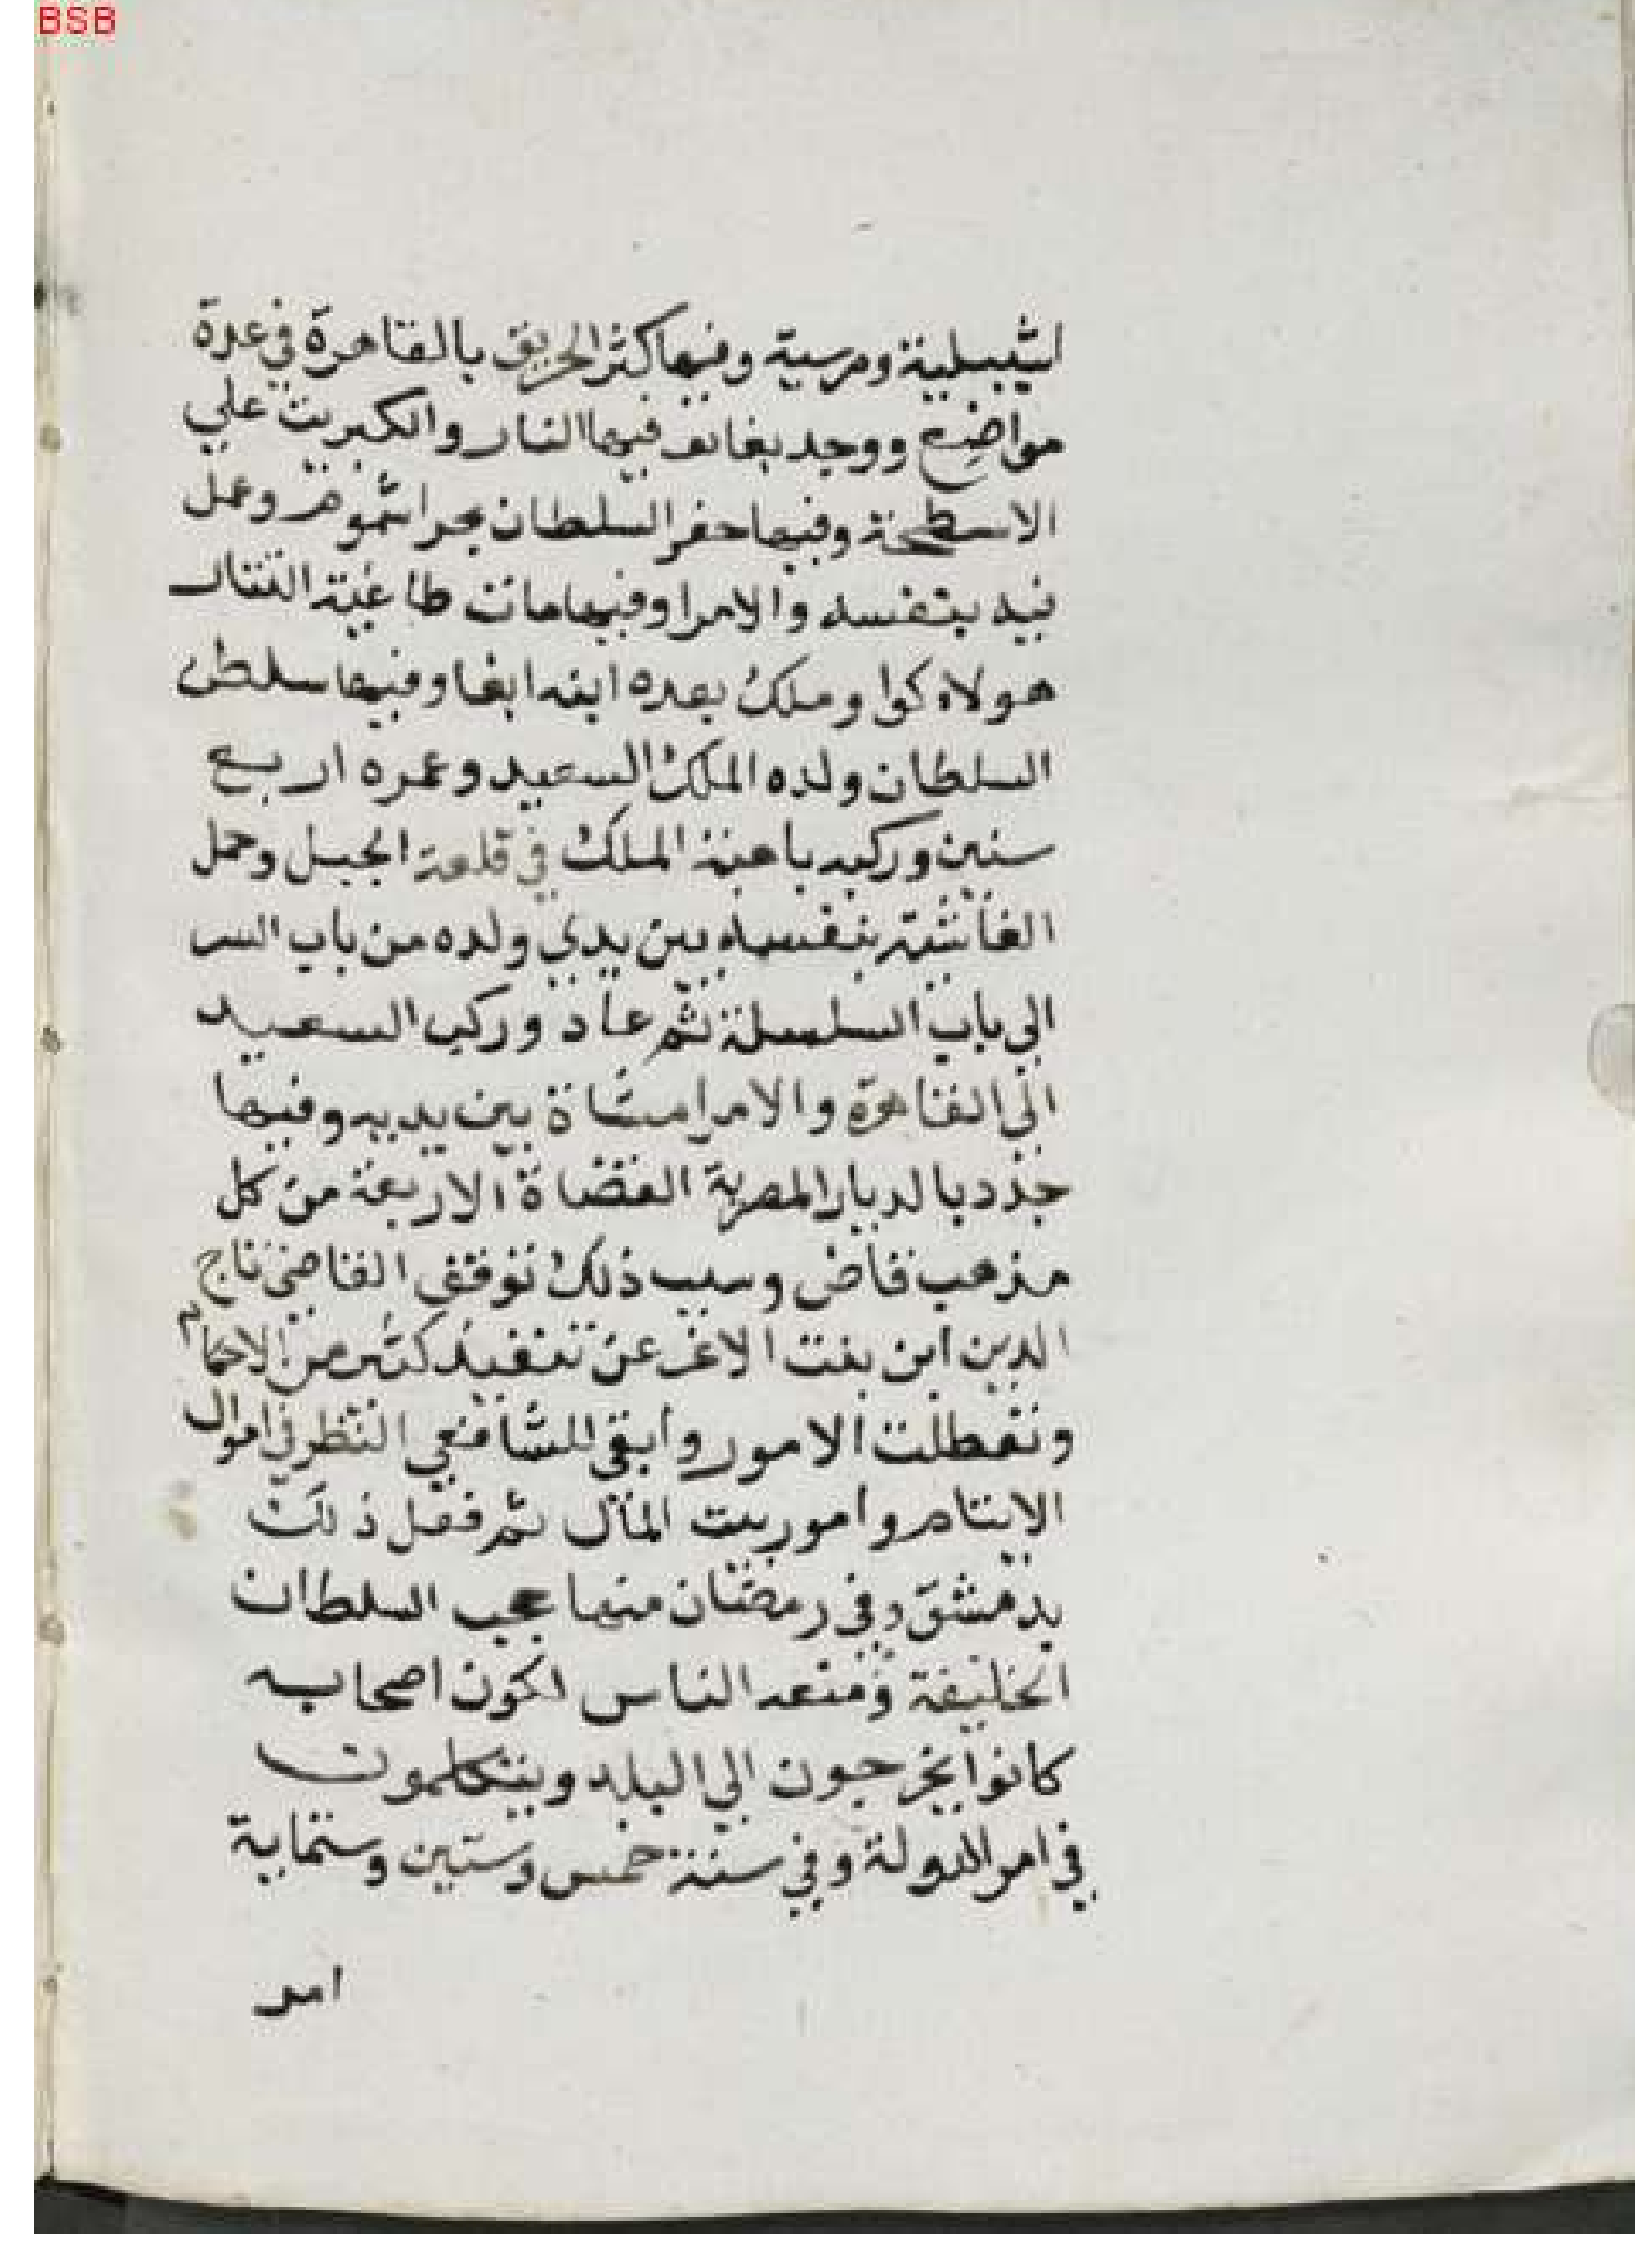 BSB
اشبيلية ومرسية وفيها كثر الحريق بالقاهرة في عدة
مواضع ووجد بغائف فيها النار والكبريت علي
الاسطحة وفيها حفر السلطان بحر اشموم وعمل
فيه بنفسه والامرا وفيها مات طاغية التتار
هولاكوا وملك بعده ابنه ابغا وفيها سلطن
السلطان ولده الملك السعيد وعمره اربع
سنين وركبه باهبة الملك في قلعة الجبل وحمل
الغاشية بنفسه بين يدي ولده من باب السر
الي باب السلسلة ثم عاد وركب السعيد
الي القاهرة والامرا مشاة بين يديه وفيها
جدد بالديار المصرية القضاة الاربعة من كل
مذهب قاض وسبب ذلك توقف القاضي تاج
الدين ابن بنت الاعز عن تنفيذ كثير من الاحكام
وتعطلت الامور وابقي للشافعي النظر في اموال
الايتام وامور بيت المال ثم فعل ذلك
بدمشق وفي رمضان منها حجب السلطان
الخليفة ومنعه الناس لكون اصحابه
كانوا يخرجون الي البلد ويتكلمون
في امر الدولة وفي سنة خمس وستين وستماية
امر